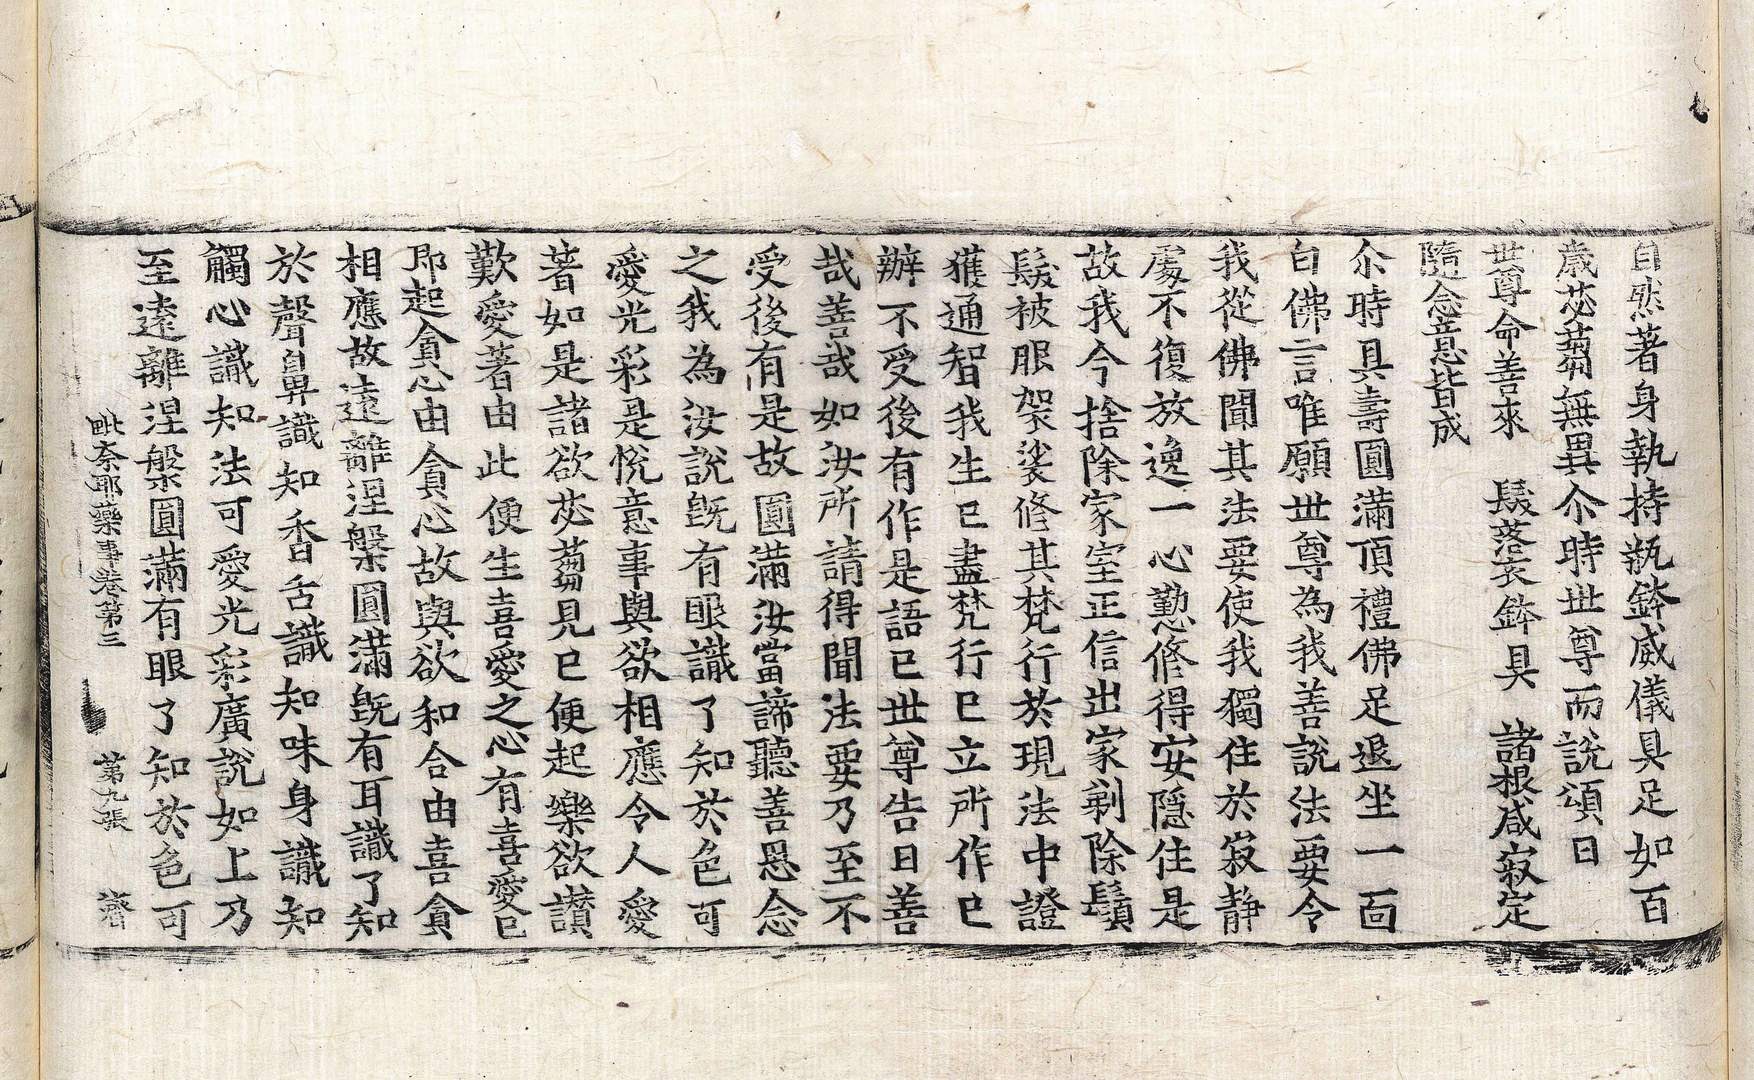 自然著身執持瓶鉢威儀具足如百
歲苾蒭無異尒時世尊而說頌曰
世尊命善來　髮落衣鉢具　諸根咸寂定
隨念意皆成
尒時具壽圓滿頂禮佛足退坐一面
白佛言唯願世尊為我善說法要令
我從佛聞其法要使我獨住於寂靜
處不復放逸一心勤修得安隱住是
故我今捨除家室正信出家剃除鬚
髮被服袈裟修其梵行於現法中證
獲通智我生已盡梵行已立所作已
辦不受後有作是語已世尊告曰善
哉善哉如汝所請得聞法要乃至不
受後有是故圓滿汝當諦聽善思念
之我為汝說旣有眼識了知於色可
愛光彩是悅意事與欲相應令人愛
著如是諸欲苾蒭見已便起樂欲讚
歎愛著由此便生喜愛之心有喜愛已
即起貪心由貪心故與欲和合由喜貪
相應故遠離涅槃圓滿旣有耳識了知
於聲鼻識知香舌識知味身識知
觸心識知法可愛光彩廣說如上乃
至遠離涅槃圓滿有眼了知於色可
毗奈耶藥事卷第三　第九張　濟